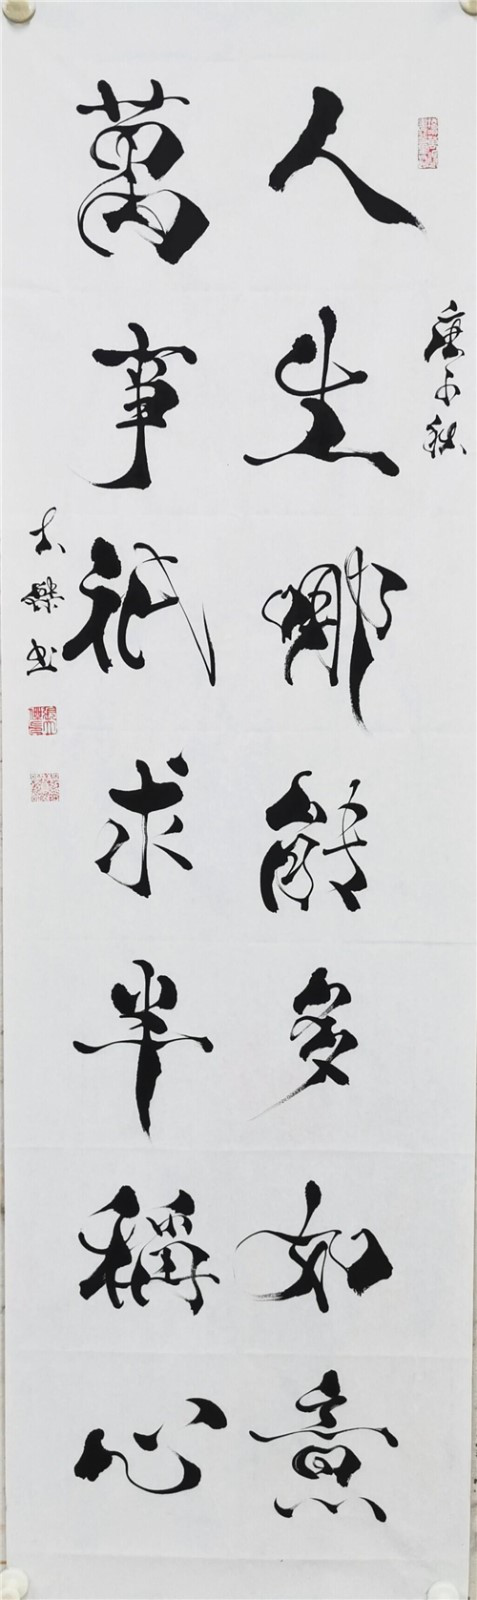 庚子秋
人生哪能多如意
萬事祇求半稱心
大傑书